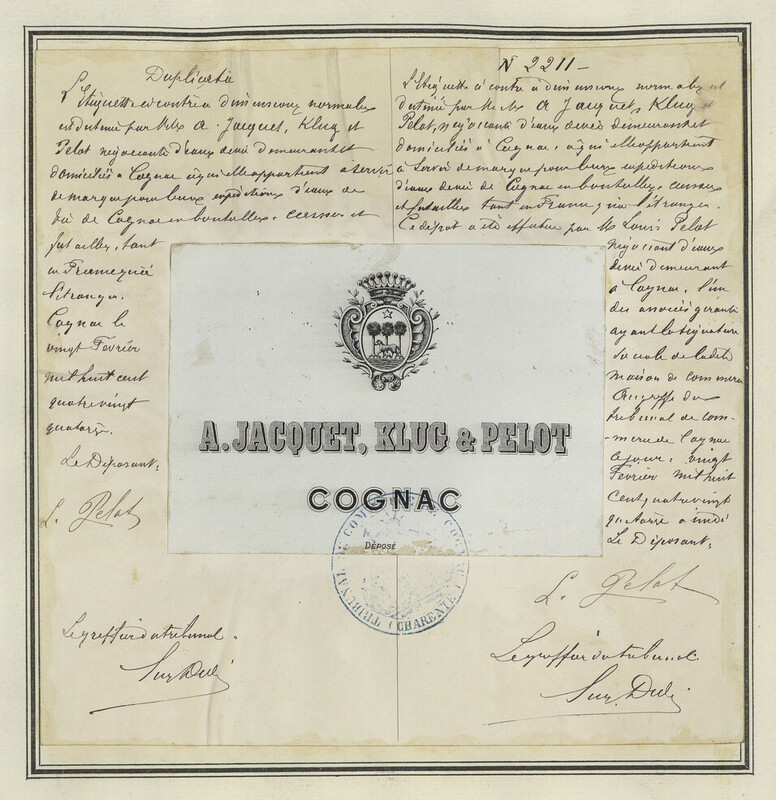 Duplicata
L'Etiquette ci contre a dimensions normales
est destinée par M. Mrs A. Jacquet, Klug et
Pelot négociants d'eaux de vie demeurant et
domiciliés à Cognac à qui elle appartient a servir
de marque pour leurs expéditions d'eaux de
vie de Cognac en bouteilles, caisses et
futailles, tant
en France qu'à
l'étranger.
Cognac le
vingt Février
mil huit cent
quatre vingt
quatorze.
Le Déposant:
L. Pelot
Le greffier du tribunal.
N 2211 –
L'Etiquette ci contre a dimensions normales est
destinée par M. Mrs A Jacquet, Klug et
Pelot, négociants d'eaux de vie demeurant et
domiciliés à Cognac, à qui elle appartient
à servir de marque pour leurs expéditions
d'eaux de vie de Cognac en bouteilles, caisses
et futailles tant en France qu'à l'étranger.
Ce dépôt a été effectué par M. Louis Pelot
négociant d'eaux
de vie demeurant
à Cognac, l'un
des associés gérants
ayant la signature
sociale de la dite
maison de commerce
Au greffe du
tribunal de com-
-merce de Cognac
ce jour, vingt
Février mil huit
cent quatre vingt
quatorze a midi
Le Déposant:
L. Pelot
Le greffier du tribunal
A. JACQUET, KLUG & PELOT
COGNAC
DÉPOSÉ
TRIBUNAL DE COMMERCE COGNAC (CHARENTE)